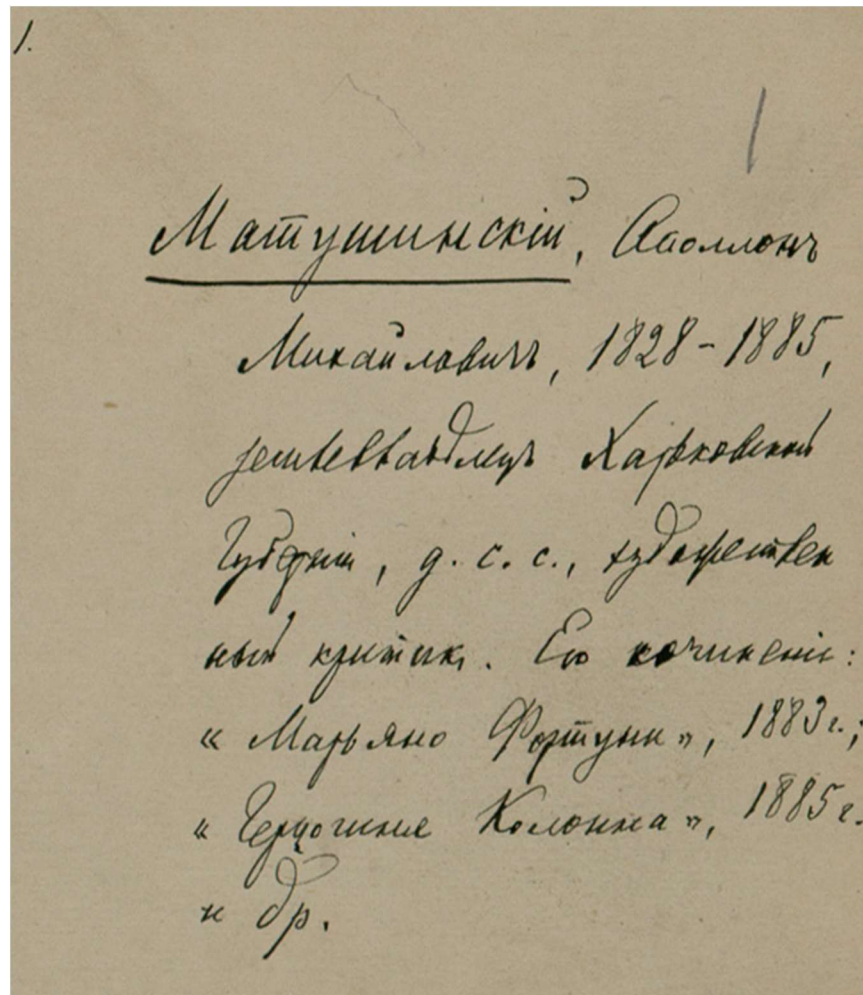 1.
1
Матушинскій, Аполлонъ
Михайловичъ, 1828-1885,
землевладѣлецъ Харьковской
Губерніи, д. с. с., художествен
ный критикъ. Его сочиненія:
« Марьяно Фортуни », 1883 г.;
« Герцогиня Колонна », 1885 г.
и др.